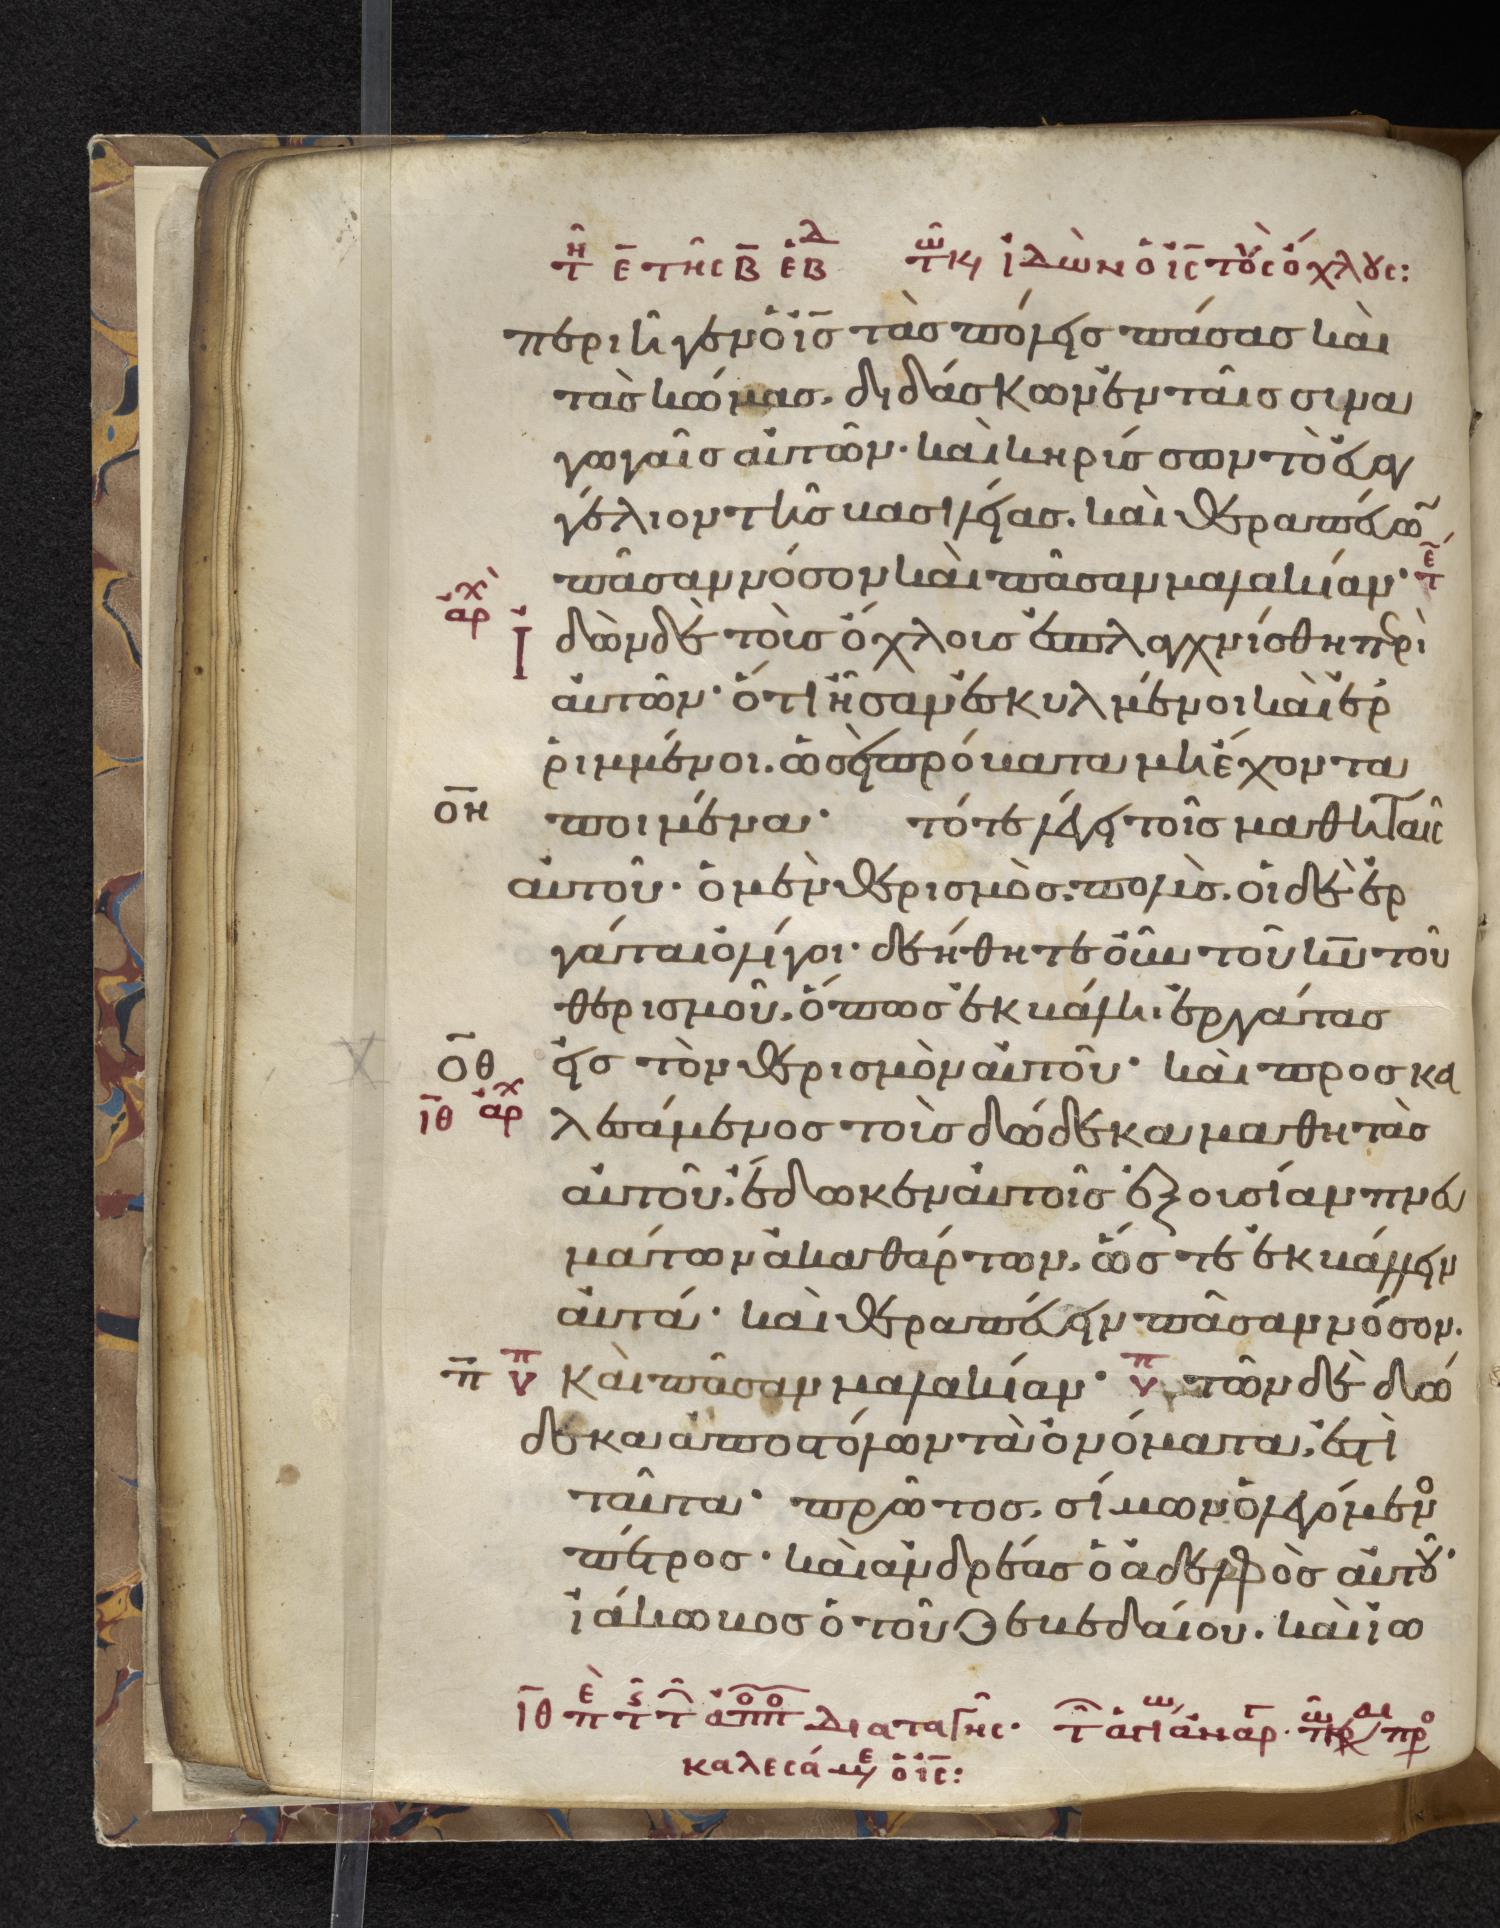 τῇ ε τῆς β ἑβδ τῷ κ ἰδὼν ὁ ις τοὺς ὄχλους:
περιῆγεν ὁ ις τὰς πόλεις πάσας καὶ
τὰς κώμας. διδάσκων ἐν ταῖς συνα
γωγαῖς αὐτῶν· καὶ κηρύσσων τὸ εὐαγ
γέλιον τῆς βασιλείας. καὶ θεραπεύω
πᾶσαν νόσον καὶ πᾶσαν μαλακίαν· τε
αρχ Ἰ δὼν δὲ τοὺς ὄχλους ἐσπλαχνίσθη περὶ
αὐτῶν· ὅτι ἦσαν ἐσκυλμένοι καὶ ἐρ
ριμμένοι. ὡσεὶ πρόβατα μὴ ἔχοντα
οη ποιμένα· τότε λέγει τοῖς μαθηταῖς
αὐτοῦ· ὁ μὲν θερισμὸς. πολὺς. οἱ δὲ ἐρ
γάται ὀλίγοι· δεήθητε οὖν τοῦ κυ τοῦ
θερισμοῦ. ὅπως ἐκβάλῃ ἐργάτας
οθ εἰς τὸν θερισμὸν αὐτοῦ· καὶ προσκα
ιθ αρχ λεσάμενος τοὺς δώδεκα μαθητὰς
αὐτοῦ. ἔδωκεν αὐτοῖς ἐξουσίαν πνευ
μάτων ἀκαθάρτων. ὥστε ἐκβάλλειν
αὐτά· καὶ θεραπεύειν πᾶσαν νόσον.
π υπ καὶ πᾶσαν μαλακίαν· υπ τῶν δὲ δώ
δεκα ἀποστόλων τὰ ὀνόματα. ἐστὶ
ταῦτα· πρῶτος. σίμων ὁ λεγόμενο
πέτρος· καὶ ἀνδρέας ὁ ἀδελφὸς αὐτοῦ·
ἰάκωβος ὁ τοῦ ζεβεδαίου. καὶ ἰω
ιθ διαταγῆς· προ
καλεσάμε ὁ ις: